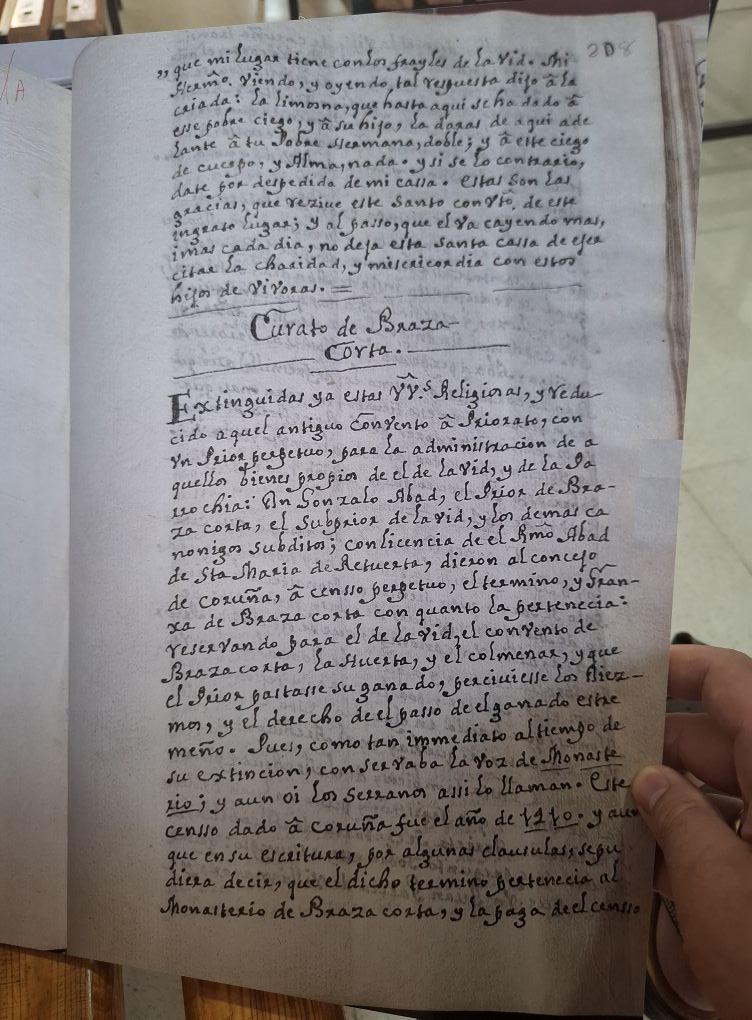 208
„ que mi lugar tiene con los frayles de la Vid. Mi
Hermo. viendo, y oyendo, tal respuesta dijo â la
criada: la limosna, que hasta aqui se ha dado â
esse pobre ciego, y â su hijo, la daras de aqui ade
lante â tu Pobre Hermana, doble; y â este ciego
de cuerpo, y Alma, nada. y si se lo contrario,
date por despedida de mi cassa. estas son las
gracias, que reziue este Santo convto. de este
ingrato lugar; y al passo, que el va cayendo mas,
imas cada dia, no deja esta santa cassa de ejer
citar la charidad, y misericordia con estos
hijos de vivoras. =
Curato de Braza
Corta.
Extinguidas ya estas VV.s Religiosas, y redu
cido aquel antiguo Convento â Priorato, con
vn Prior perpetuo, para la administracion de a
quellos bienes propios de el de la Vid, y de la Pa
rrochia: Dn Gonzalo Abad, el Prior de Bra-
za corta, el Subprior de la Vid, y los demas ca
nonigos subditos; con licencia de el Rmo Abad
de Sta Maria de Retuerta, dieron al concejo
de coruña, â censso perpetuo, el termino, y Gran-
xa de Braza corta con quanto la pertenecia:
reservando para el de la Vid, el convento de
Braza corta, la Huerta, y el colmenar, y que
el Prior pastasse su ganado, perciuiesse los Diez-
mos, y el derecho de el passo de el ganado estre
meño. Pues, como tan immediato al tiempo de
su extincion, conservaba la voz de Monaste
rio; y aun oi los serranos assi lo llaman. Este
censso dado â coruña fue el año de 1210. y aun
que en su escritura, por algunas clausulas, se pu
diera decir, que el dicho termino pertenecia al
Monasterio de Braza corta, y la paga de el censso